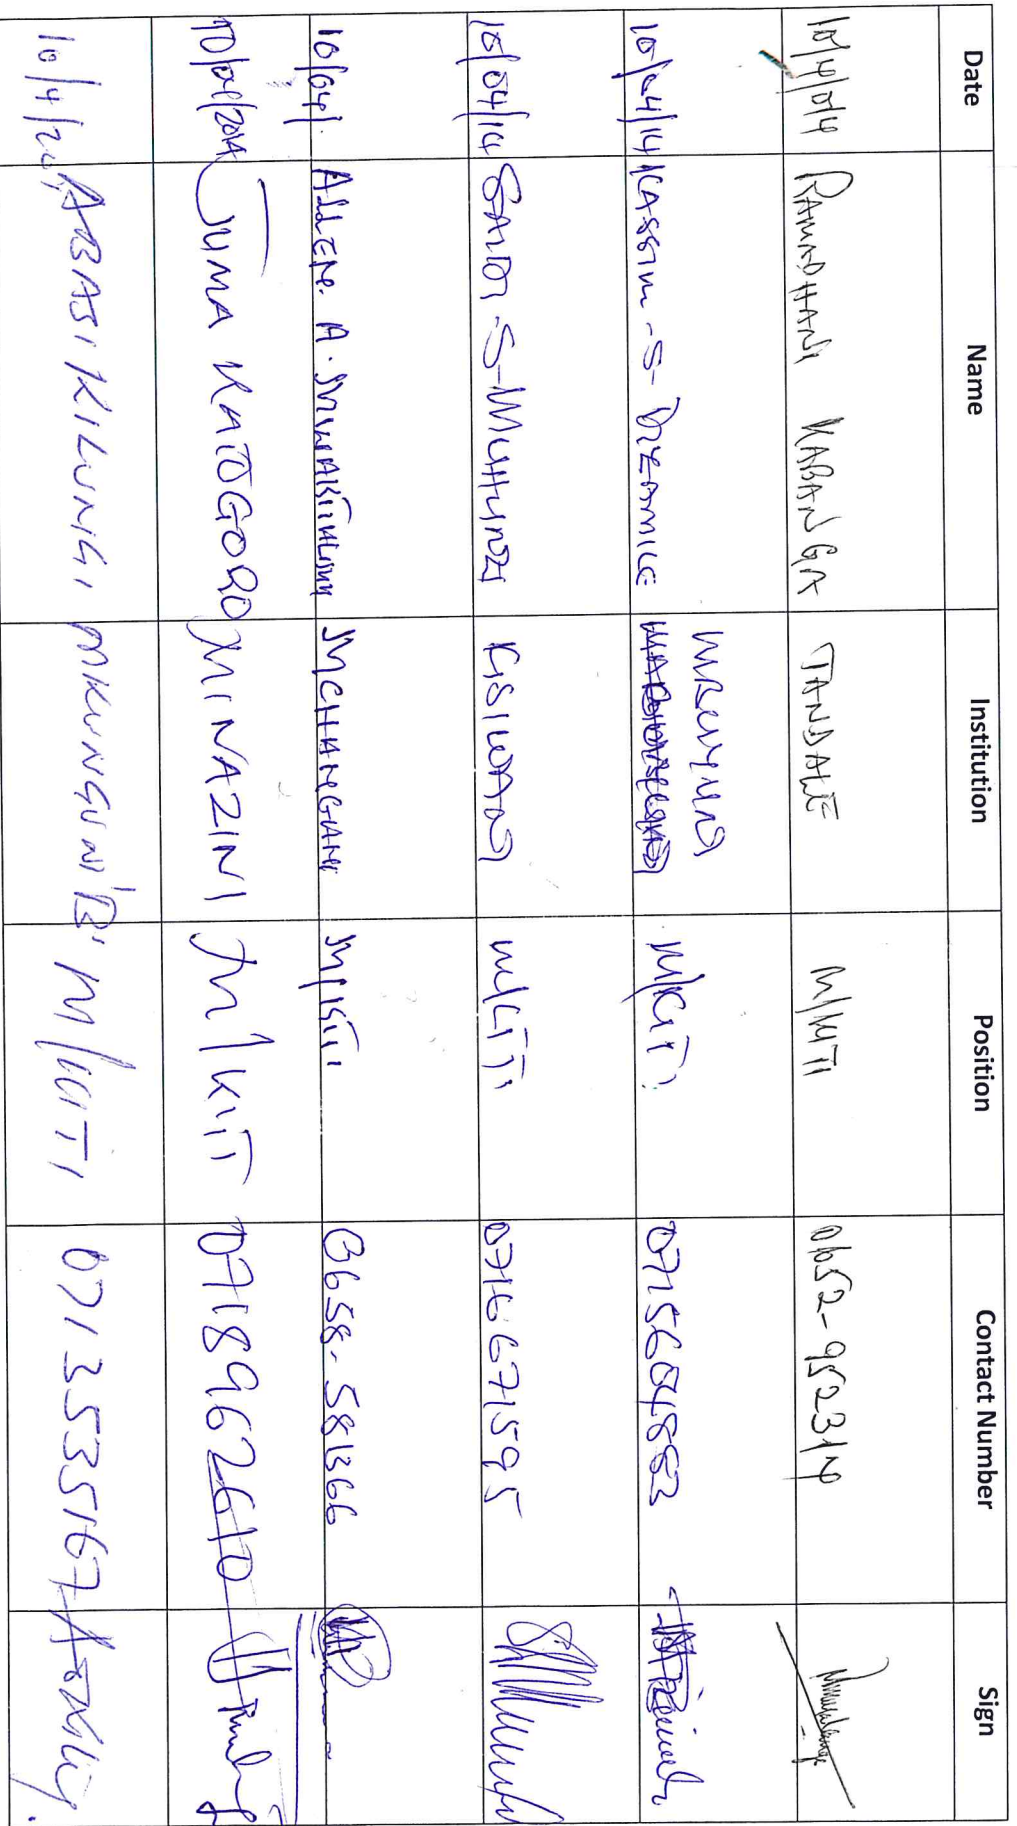 Date Name Institution Position Contact Number Sign
10/4/014 RAMADHANI KABANGA TANDALE M/KITI 0652-952314
10/04/14 KASSIM-S- M/KITI 0715604883
10/04/14 SAIDI-S-MUHUNZI KISIWANI M/KITI 0716671595
10/04/. A. MCHANGANI M/KITI 0658-581366
10/04/2014 JUMA KATOGORO MINAZINI M/KITI 0718962610
10/4/201 ABASI KILUNGI MKUNGUNI 'B' M/KITI 0713535167